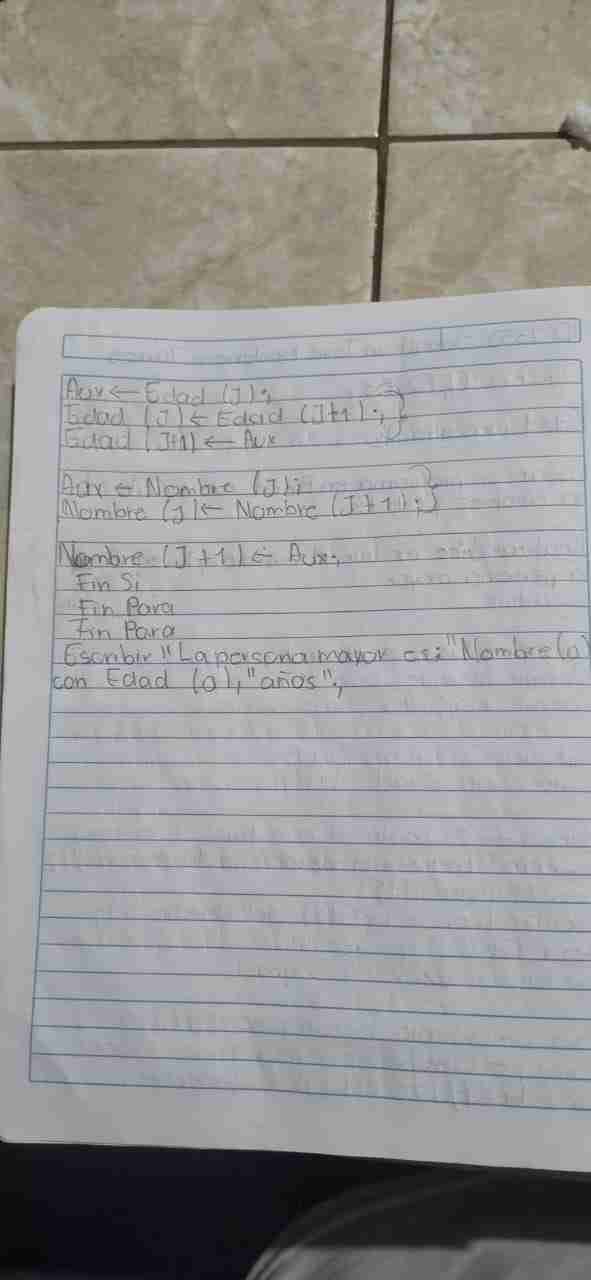 Aux ← Edad (J);
Edad (J) ← Edad (J+1); }
Edad (J+1) ← Aux
Aux ← Nombre (J);
Nombre (J) ← Nombre (J+1); }
Nombre (J+1) ← Aux;
Fin Si
Fin Para
Fin Para
Escribir "La persona mayor es:" Nombre (0)
con Edad (0), "años";